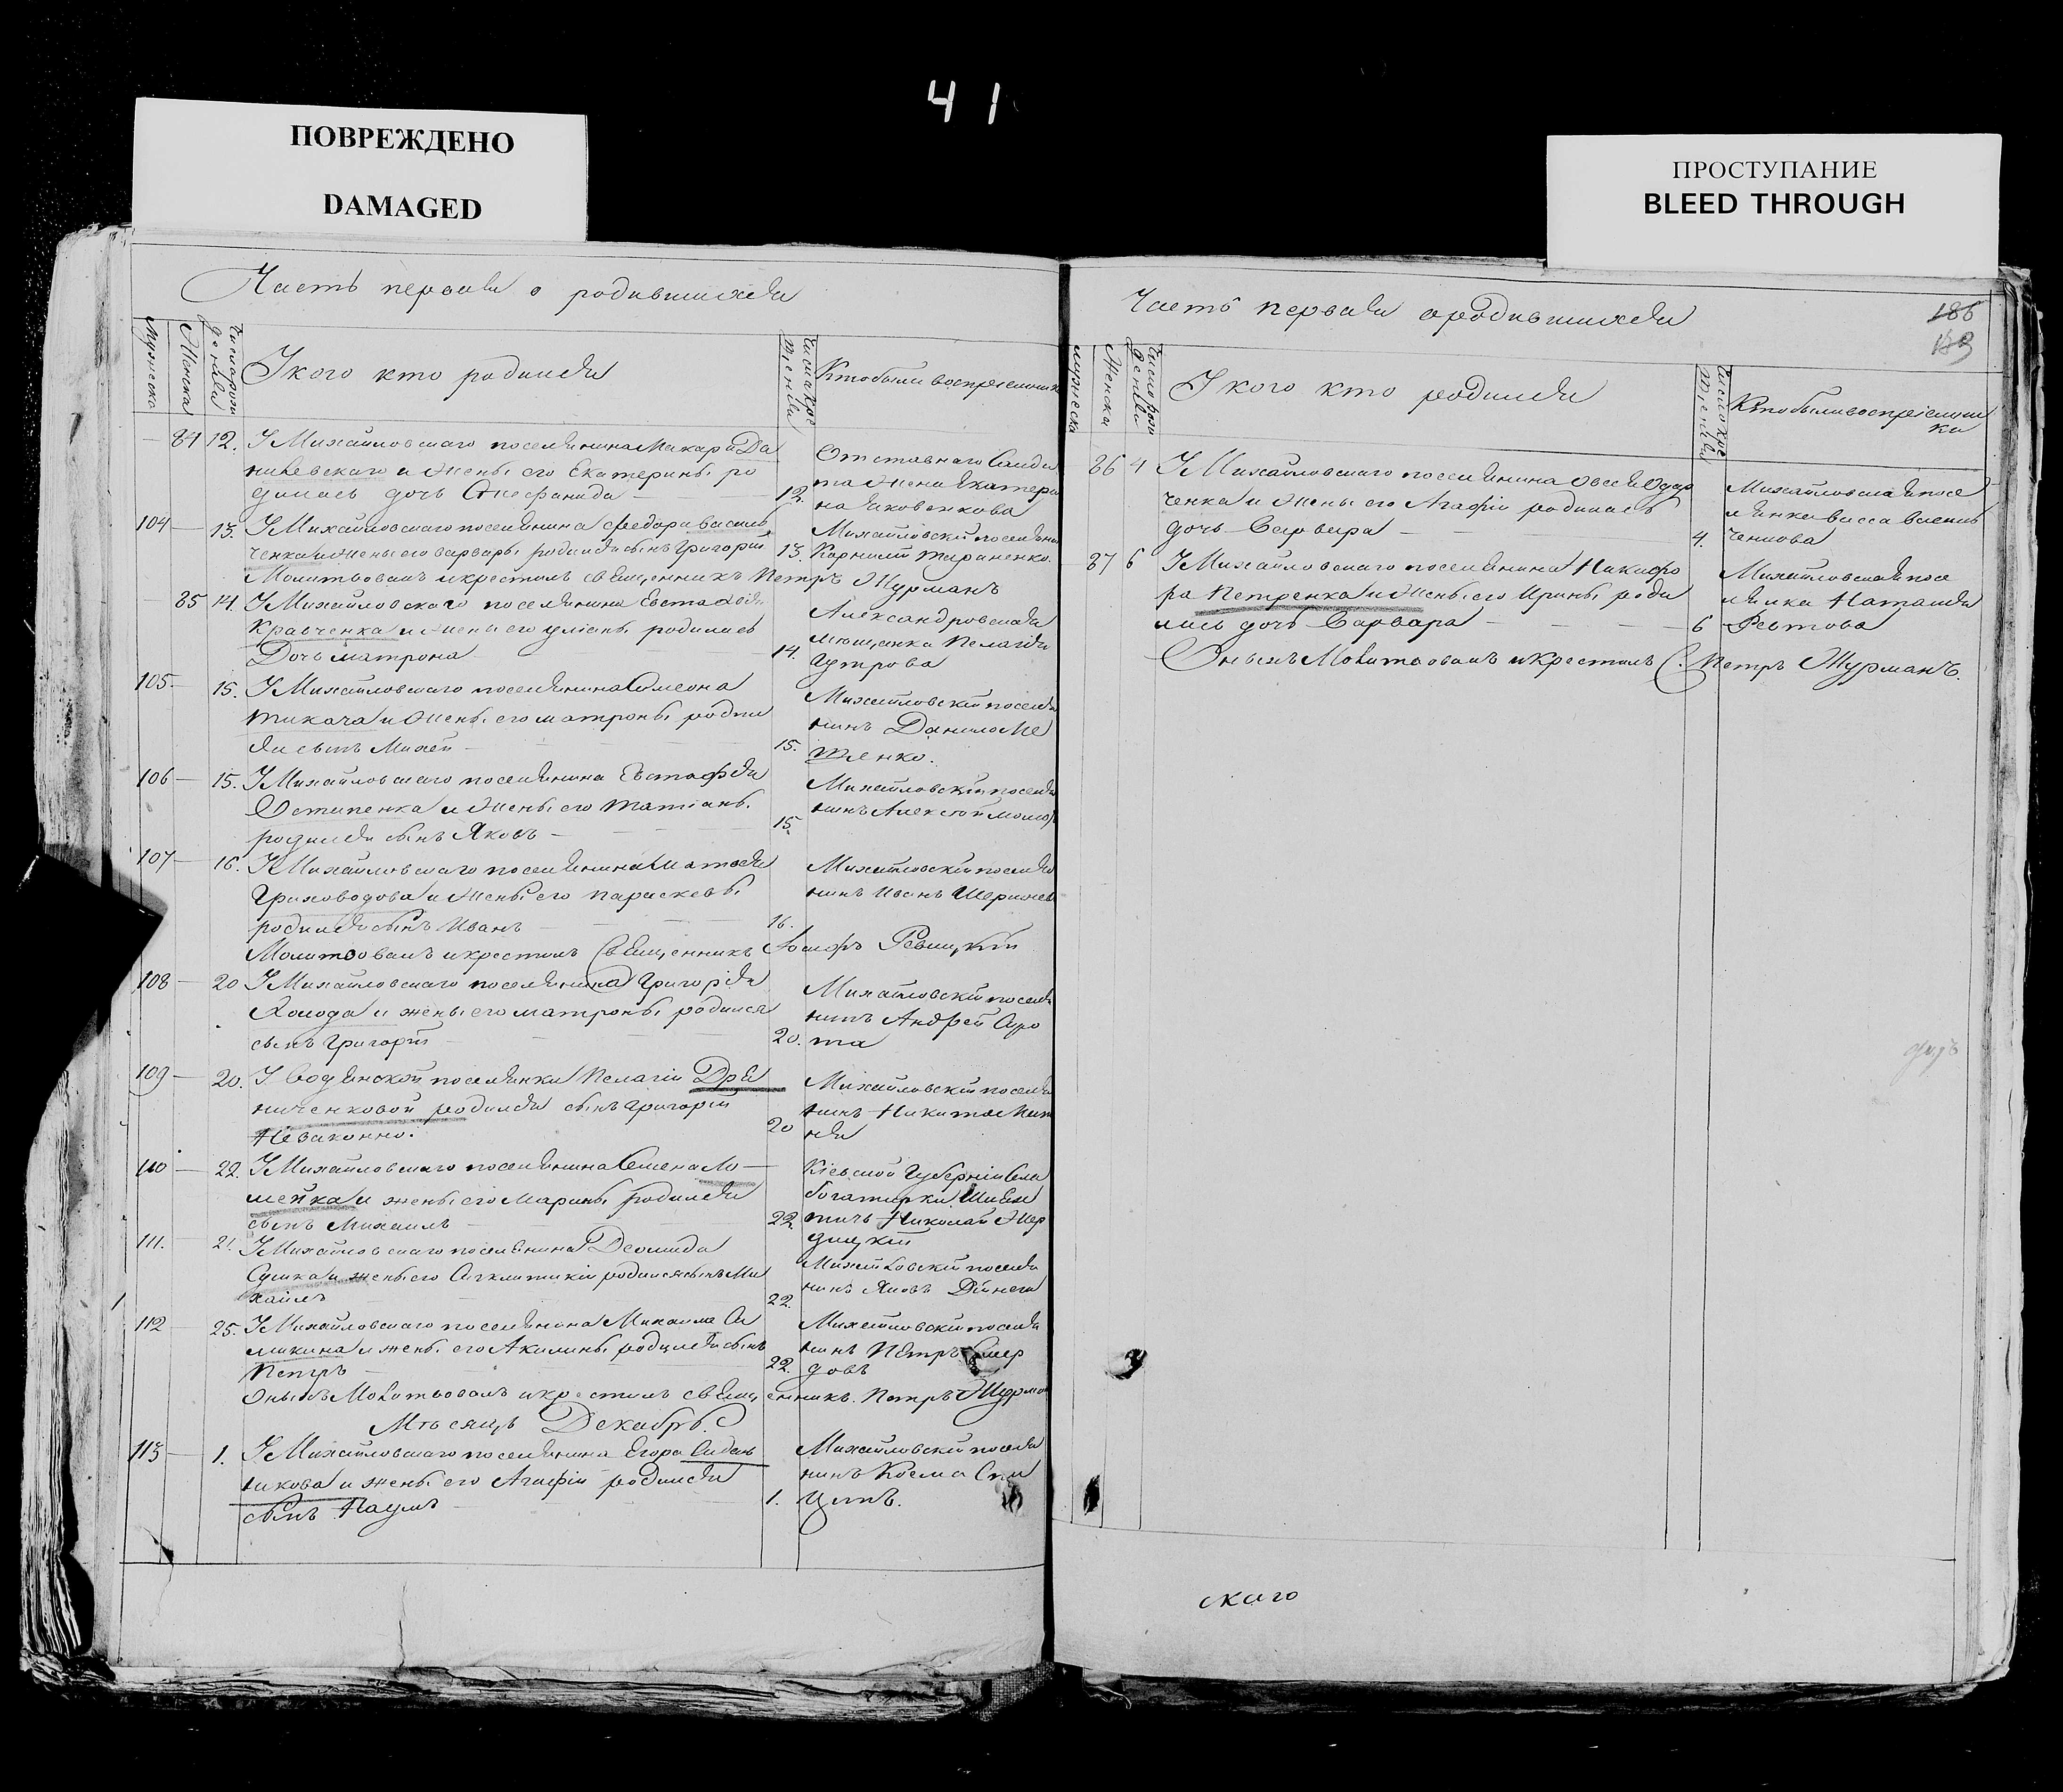 41
ПОВРЕЖДЕНО
DAMAGED
ПРОСТУПАНИЕ
BLEED THROUGH
Часть первая о родившихся
Мужеска
Женска
Число рож
денія
У кого кто родился
Число кре
щенія
Кто были воспріемники
84 12. У Михайловскаго поселянина Макара Да
нилевскаго и жены его Екатерины ро
дилась дочь Стефанида 12.
Отставнаго Солда
та жена Екатери
на Яковенкова
104 13. У Михайловскаго поселянина Федора Василь
ченка и жены его Варвары родился сынъ Григорій 13.
Михайловскій поселянин
Корнилій Тараненко.
Молитвовалъ и крестилъ священникъ Петръ Журманъ
85 14. У Михайловскаго поселянина Евстафія
Кравченка и жены его Уліяны родилась
Дочь Матрона 14.
Александровская
мещанка Пелагія
105. 15. У Михайловскаго поселянина Симеона
Ткача и жены его Матроны роди
ся сынъ Михей 15.
Михайловскій поселя
нинъ Данило Ме
106 15. У Михайловскаго поселянина Евстафія
Остапенка и жены его Татіаны
родился сынъ Яковъ 15.
Михайловскій поселя
нинъ Алексей
107 16. У Михайловскаго поселянина Матвея
Гриховодова и жены его Параскевы
родился сынъ Иванъ 16.
Михайловскій поселя
нинъ Иванъ
Молитвовалъ и крестилъ Священникъ Іосифъ Ревицкій
108 20 У Михайловскаго поселянина Григорія
Холода и жены его Матроны родился
сынъ Григорій 20.
Михайловскій поселя
нинъ Андрей Сиро
та
109 20. У Водянской поселянки Пелагіи Дре
ниченковой родился сынъ Григорій
Незаконно. 20
Михайловскій поселя
нинъ Никита
110 22. У Михайловскаго поселянина Семена Ло
мейка и жены его Марины родился
сынъ Михаилъ 22.
Кіевской Губерніи Села
Богатырки Шлях
тичь Николай Жер
дицкій
111. 21. У Михайловскаго поселянина Деомида
Сушка и жены его Сигклитикіи родился сынъ Ми
хаилъ 22.
Михайловскій поселя
нинъ Яковъ Дейнега
112 25. У Михайловскаго поселянина Михаила Са
микина и жены его Акилины родился сынъ
Петръ 22.
Михайловскій поселя
нинъ Петръ
довъ
Оныхъ Молитвовалъ и крестилъ священникъ Петръ Журма
Мѣсяцъ Декабрь
113 1. У Михайловскаго поселянина Егора Сидель
никова и жены его Агафіи родился
сынъ Наумъ 1.
Михайловскій поселя
нинъ Косма Спи
цинъ.
Часть первая о родившихся
186
Мужеска
Женска
Число рож
денія
У кого кто родился
Число кре
щенія
Кто были воспріемни
ки
86 4 У Михайловскаго поселянина Овсея Одар
ченка и жены его Агафіи родилась
дочь Варвара 4.
Михайловская посе
лянка Васса Василь
ченкова
87 6 У Михайловскаго поселянина Никифо
ра Петренка и жены его Ирины роди
лась дочь Варвара 6
Михайловская посе
лянка Наталія
Ревтова
Оныхъ Молитвовалъ и крестилъ С. Петръ Журманъ.
скаго